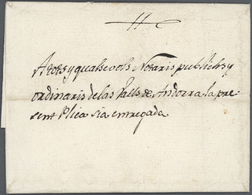 A tots y qualsevols Notaris publichs y
ordinaris de las Valls de Andorra la pre
sent Plica sia entregada